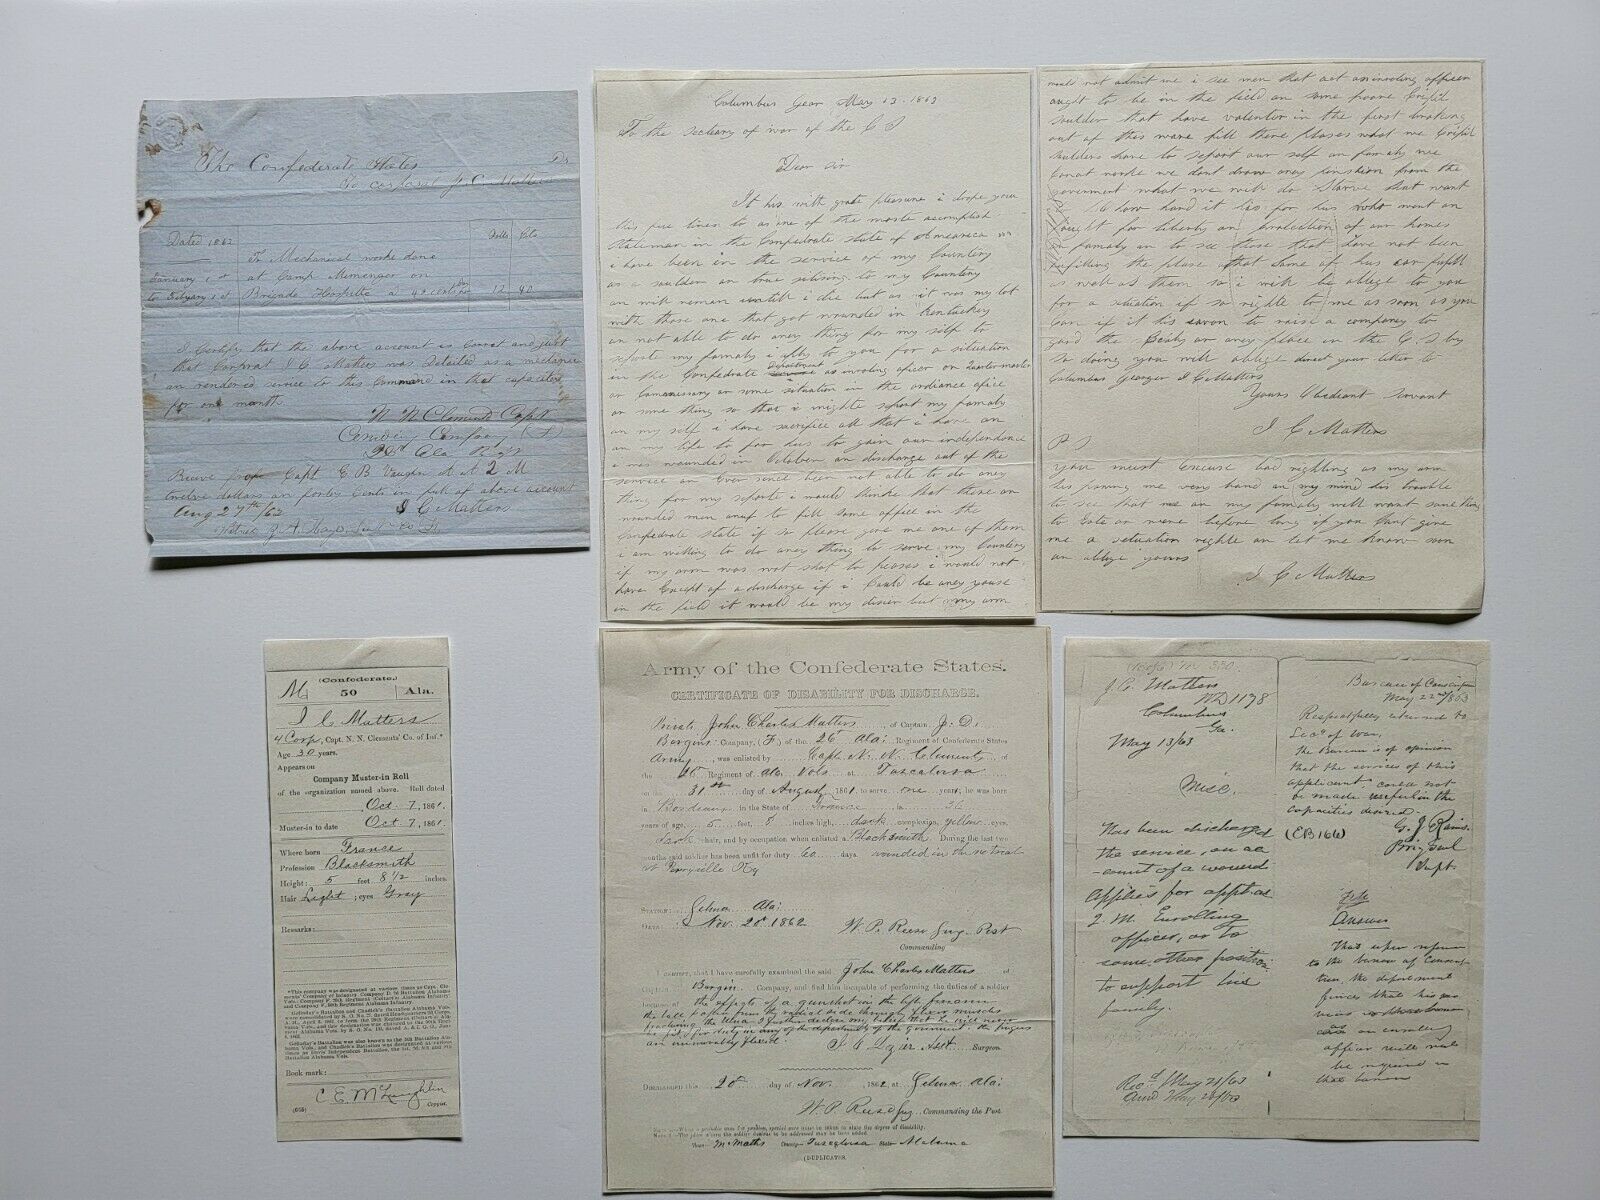 The Confederate States Dr
To corporal J. C. Matters
Dated 1862
Dolls Cts
January 1st
to Febyary 1st
To Mechanical worke done
at Camp Memenger on
Brigade Hospittle a 40 cents
12 40
I Certify that the above account is Correct and just
that Corporal J C Matters was Detailed as a mechanic
an rendered service to this Command in that capacitee
for one month
N N Clements Capt
Comdg Company (F)
26th Ala Regt
Receive from Capt E B Vaughn A A 2 M
twelve dollars an forty Cents in full of above account
Aug 27th/62 J C Matters
Columbus Geor May 13 - 1863
To the secteary of war of the C S
Dear sir
It his with grate pleasure i drope you
this few lines to as one of the moste acomplish
stateman in the Confedrate state of Ameareca
i have been in the service of my Country
as a soulder an true sitisong to my Country
an will reman untill i die but as it was my lot
with those one that got wounded in Kentuckey
an not able to do aney thing for my self to
seport my famaly i apley to you for a situation
in the Confedrate Department as inroling oficer or quartermaster
or Commessary or some situation in the ordiance ofice
or some thing so that i mighte seport my famaly
an my self i have sacrifice all that i have an
an my life to for his to gain our independance
i was wounded in October an discharge out of the
service an Ever sence been not able to do aney
thing for my seporte i would thinke that those an
wounded men anuf to fill some office in the
Confedrate state if so please give me one of them
i am willing to do aney thing to serve my Country
if my arm was not shot to peases i would not
have Except of a discharge if i Could be aney youse
in the field it would be my disier but my arm
would not admit me i see men that act as inroling officer
ought to be in the field an some poore Cripil
soulder that have valenter in the first braking
out of this ware fill there plases what we Cripil
soulders have to seport our self an famaly we
Canot worke we dont draw aney penshion from the
goverment what we will do Starve that want
how hard it his for his who want an
fought for liberty an protection of our homes
an famaly an to see those that have not been
fulfilling the plase that some of his can fulfill
as well as them so i will be ablege to you
for a situation if so righte to me as soon as you
Can if it his savon to raise a company to
gard the Costs or aney place in the C S by
so doing you will oblege direct your letter to
Columbus Georger J C Matters
Yours Obediant servant
J C Matters
P S
You must Excuse bad righting as my arm
his paning me very hard an my mind his trouble
to see that me an my famaly will want somthing
to Eate or ware before long if you Cant give
me a setuation righte an let me know soon
an oblige yours
J C Matters
(Confederate.)
M 50 Ala.
J C Matters
4 Corp, Capt. N. N. Clements' Co. of Inf.*
Age 30 years.
Appears on
Company Muster-in Roll
of the organization named above. Roll dated
Oct. 7, 1861.
Muster-in to date Oct. 7, 1861.
Where born France
Profession Blacksmith
Height: 5 feet 8 1/2 inches
Hair Light; eyes Gray
Remarks:
*This company was designated at various times as Capt. Clements' Company of Infantry
Book mark:
C. E. McLaughlin
Copyist.
Army of the Confederate States.
CERTIFICATE OF DISABILITY FOR DISCHARGE.
Private John Charles Matters of Captain J. D.
Burgins Company, (F) of the 26th Ala: Regiment of Confederate States
Army, was enlisted by Capt. N. N. Clements of
the 26 Regiment of Ala Vols at Tuscaloosa
on 31st day of August 1861, to serve one years; he was born
in Bordeaux in the State of France is 36
years of age, 5 feet, 8 inches high, dark complexion, yellow eyes,
Dark hair, and by occupation when enlisted a Blacksmith. During the last two
months said soldier has been unfit for duty 60 days wounded in the retreat
at Perryville Ky
STATION: Selma Ala:
DATE: Nov. 20th 1862
W. P. Reese Surg. Post
Commanding
I CERTIFY, that I have carefully examined the said John Charles Matters of
Captain Burgin Company, and find him incapable of performing the duties of a soldier
because of the effects of a gunshot in the left forearm
Surgeon.
DISCHARGED this 20 day of Nov. 1862 at Selma Ala:
W. P. Reese Surg. Commanding the Post.
Town McMaths County Tuscaloosa State Alabama
(DUPLICATES.
J. C. Matters
WD 1178
Columbus
Ga.
May 13/63
Misc.
Has been discharged
the service, on ac
-count of a wound
applies for appt. as
E. M. Enrolling
officer, or to
some other position
to support his
family.
Recd May 21/63
Bureau of Conscription
May 22nd/863
Respectfully returned to
Secy of War.
The Bureau is of opinion
that the services of this
applicant could not
be made useful in the
capacities desired.
(EB 166)
G. J. Rains.
Brig Genl
Supt.
File
Answer
That upon referen
to the bureau of Conscrip
tion, the department
finds that his ser
vices
as an enrolling
officer will not
be required in
that bureau